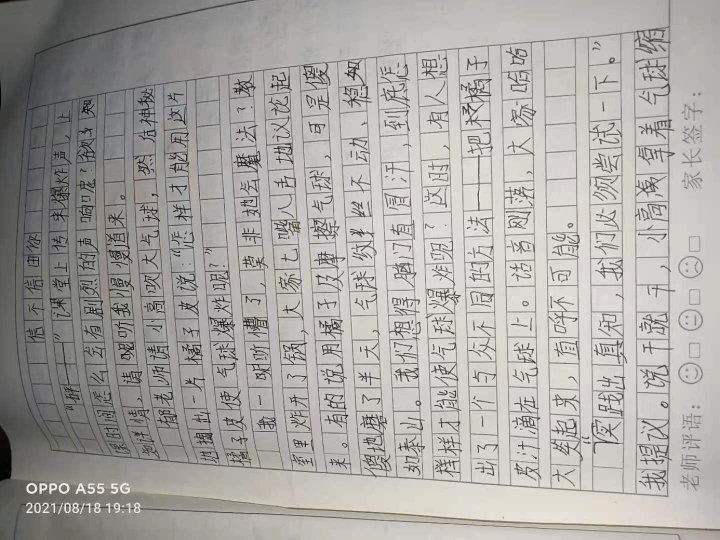 信不信由你
“砰——”课堂上传来爆炸声，上
课时间怎么会有剧烈的声响呢？欲知
详情，请听我慢慢道来。
郁老师请小高吹大气球，然后神秘
地掏出一片橘子皮说：“怎样才能用这片
橘子皮使气球爆炸呢？”
我一听听懵了，莫非她会魔法？教
室里炸开了锅，大家七嘴八舌地议论起
来。有的说用橘子皮摩擦气球，可是傻
傻地磨了半天，气球纹丝不动、稳如
如泰山。我们想得脑门直冒汗，到底怎
样样才能使气球爆炸呢？这时，有人想
出了一个与众不同的方法——把橘子
皮汁滴在气球上。话音刚落，大家哈哈
大笑起来，直呼不可能。
“实践出真知，我们必须尝试一下。”
我提议。说干就干，小高满拿着气球缩
老师评语： 家长签字：
OPPO A55 5G
2021/08/18 19:18